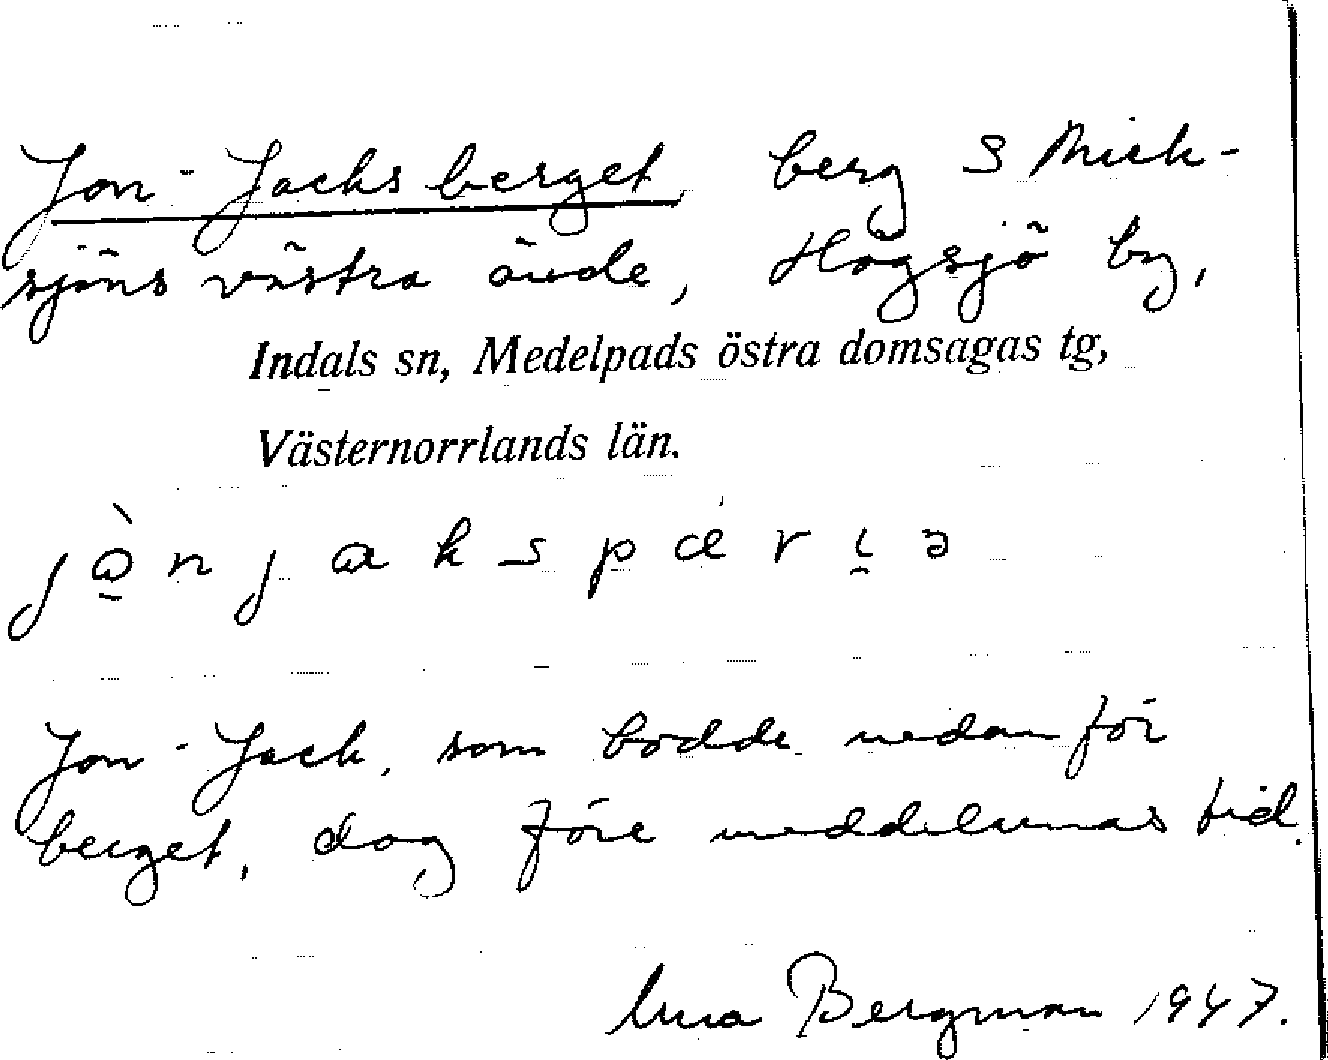 Jon-Jacksberget, berg S Mick-
sjöns västra ände, Högsjö by,
Indals sn, Medelpads östra domsagas tg,
Västernorrlands län.
Jon-Jack, som bodde nedanför
berget, dog före meddelarnas tid.
Bergman 1947.